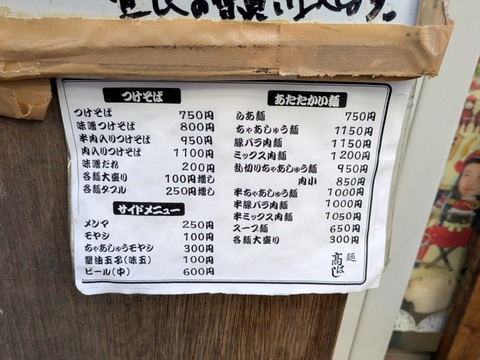 つけそば
つけそば 750円
味噌つけそば 800円
半肉入りつけそば 950円
肉入りつけそば 1100円
味噌だれ 200円
各麺大盛り 100円増し
各麺ダブル 250円増し
サイドメニュー
メンマ 250円
モヤシ 100円
ちゃあしゅうモヤシ 300円
醤油五名(味五) 100円
ビール(中) 600円
あたたかい麺
らあ麺 750円
ちゃあしゅう麺 1150円
豚バラ肉麺 1150円
ミックス肉麺 1200円
乱切りちゃあしゅう麺 950円
肉小 850円
半ちゃあしゅう麺 1000円
半豚バラ肉麺 1000円
半ミックス肉麺 1050円
スープ麺 650円
各麺大盛り 300円
麺
高はし